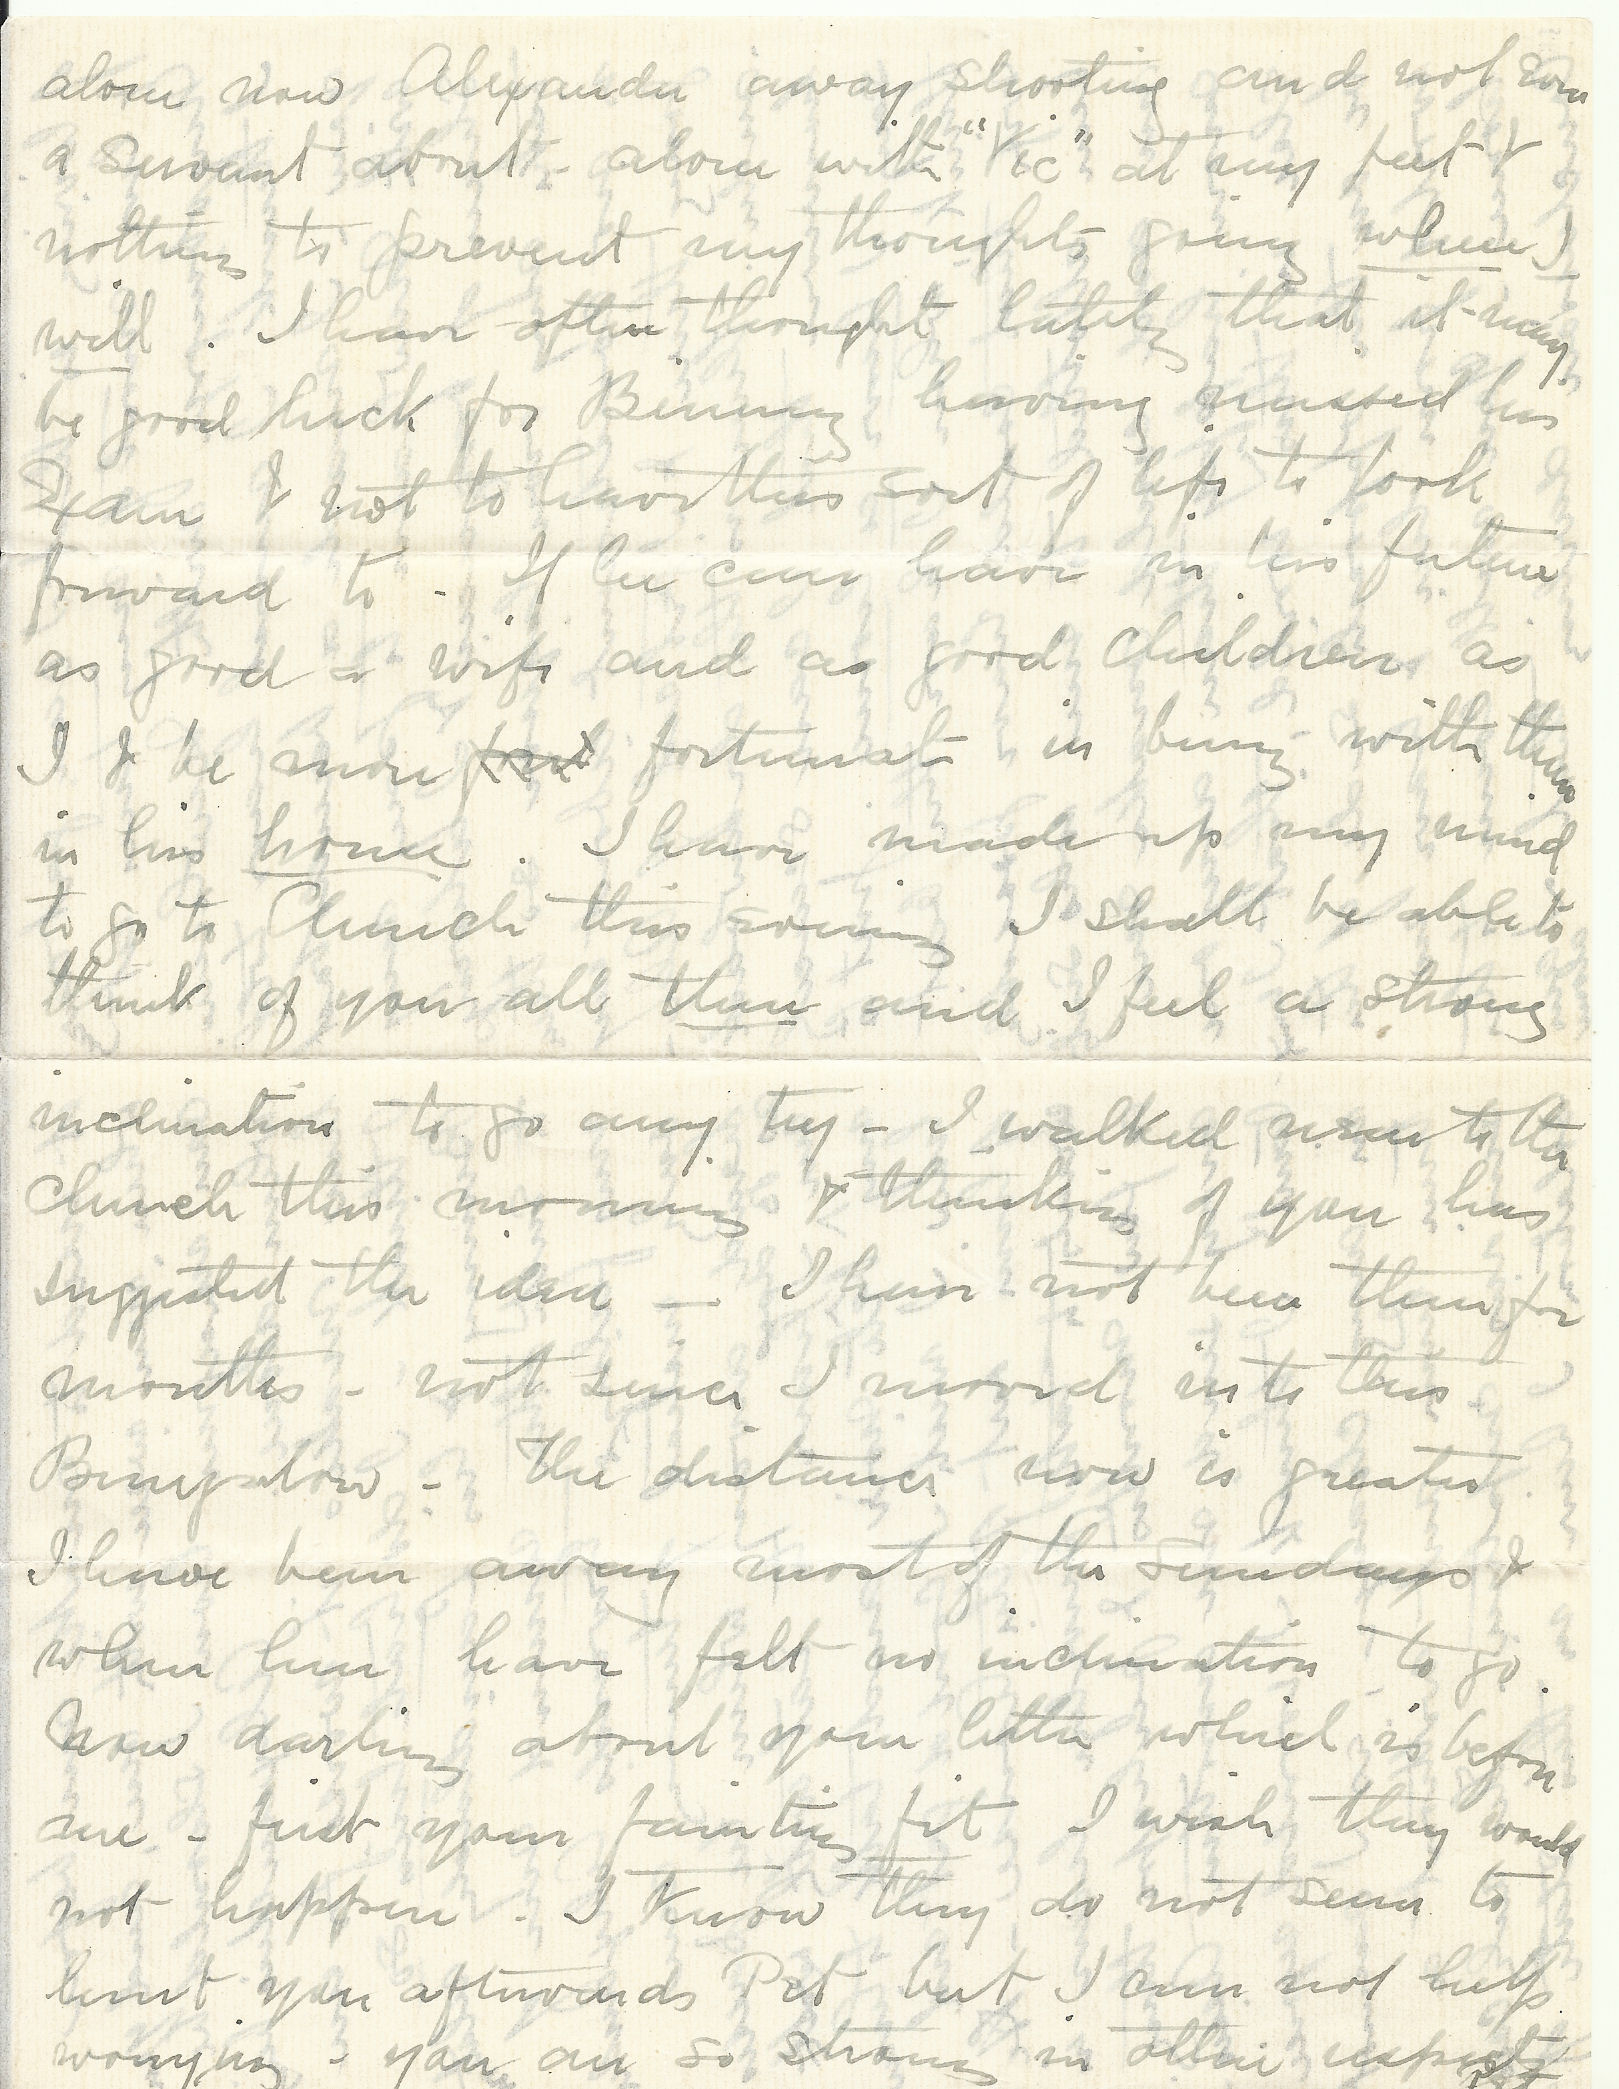 alone now Alexander away shooting and not even
a servant about - alone with "Vic" at my feet &
nothing to prevent my thoughts going where I
will. I have often thought lately that it may
be good luck for Binny having missed his
Exam & not to have this sort of life to look
forward to - If he can have in his future
as good a wife and as good children as
I & be more fortunate in being with them
in his home. I have made up my mind
to go to Church this evening I shall be able to
think of you all there and I feel a strong
inclination to go any
 - I walked near to the
church this morning & thinking of you has
suggested the idea — I have not been there for
months - not since I moved into this
Bungalow - The distance now is greater
I have been away most of the Sundays &
when here have felt no inclination to go.
Now darling about your letter which is before
me - first your fainting fit I wish they would
not happen. I know they do not seem to
hurt you afterwards Pet but I can not help
worrying - you are so strong in other respects